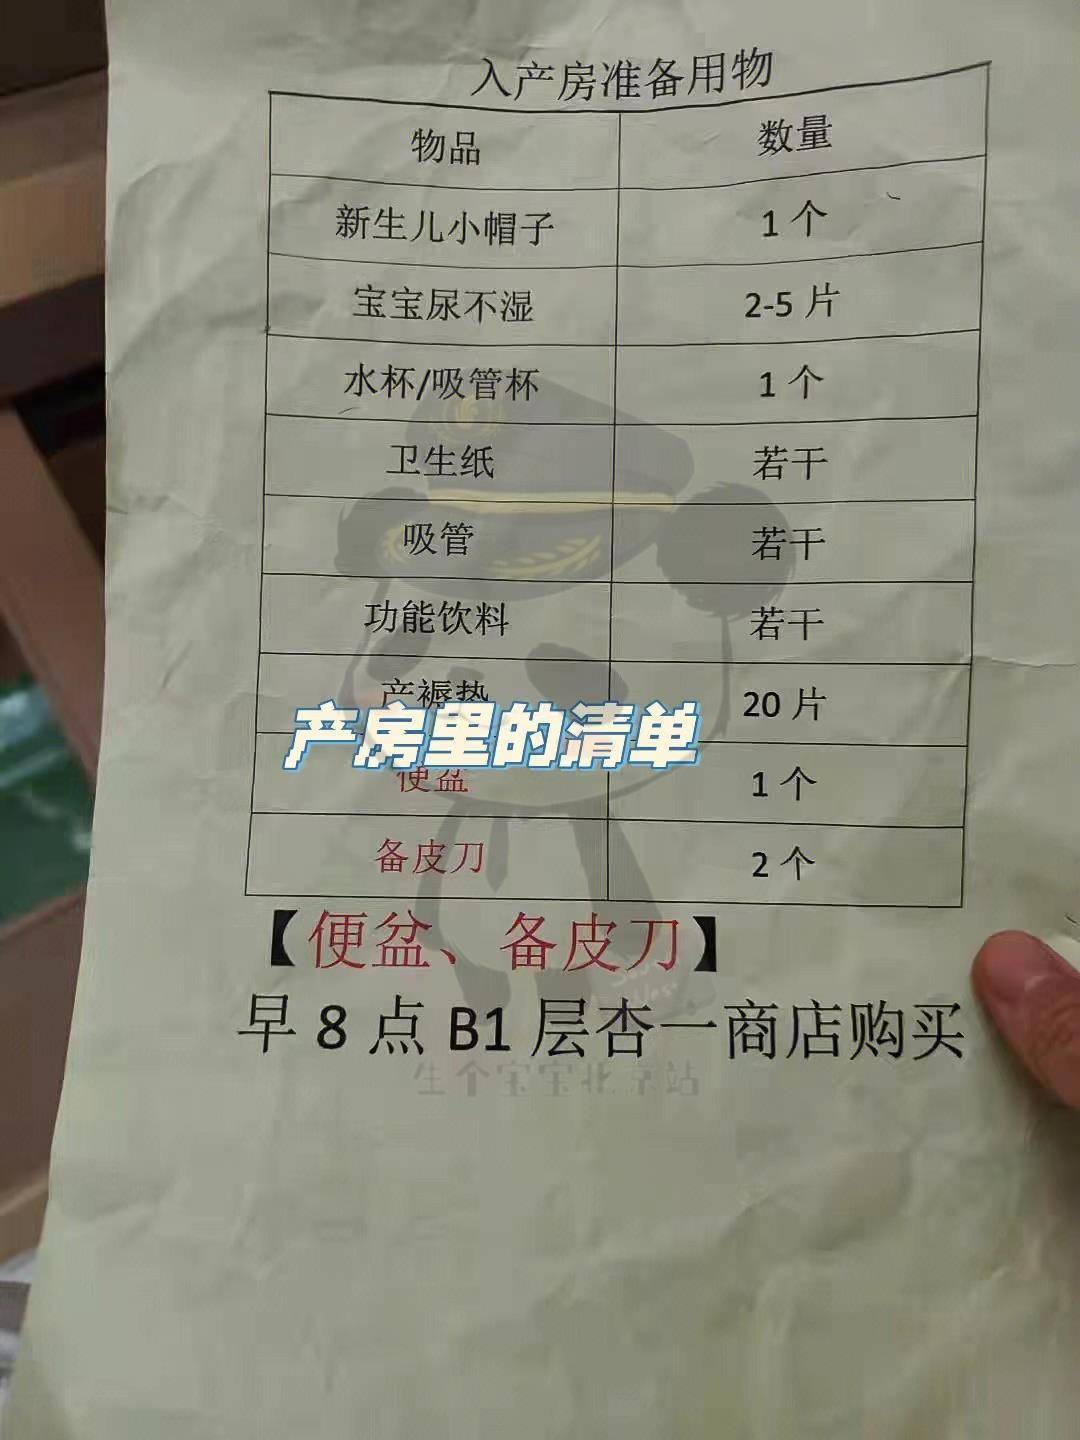 入产房准备用物
物品 数量
新生儿小帽子 1 个
宝宝尿不湿 2-5 片
水杯/吸管杯 1 个
卫生纸 若干
吸管 若干
功能饮料 若干
产褥垫 20 片
产房里的清单
便盆 1 个
备皮刀 2 个
【便盆、备皮刀】
早 8 点 B1 层杏一商店购买
生个宝宝北京站